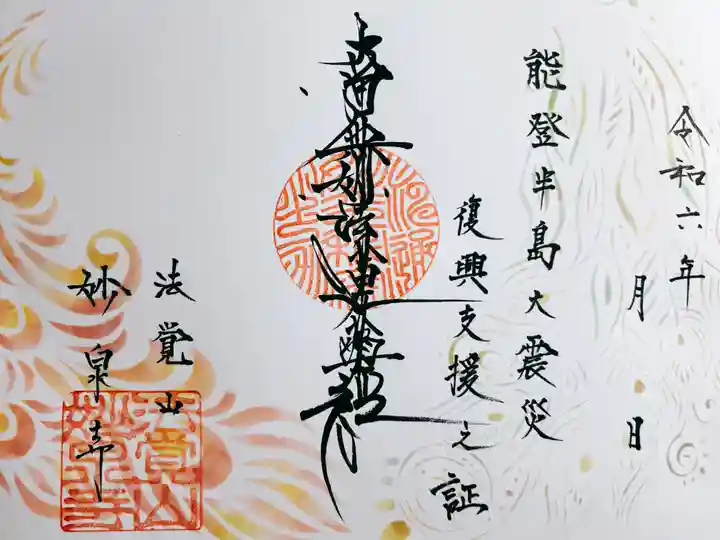 令和六年
月 日
能登半島大震災
復興支援之証
南無妙法蓮華経
法覚山
妙泉寺
法覚山妙泉寺